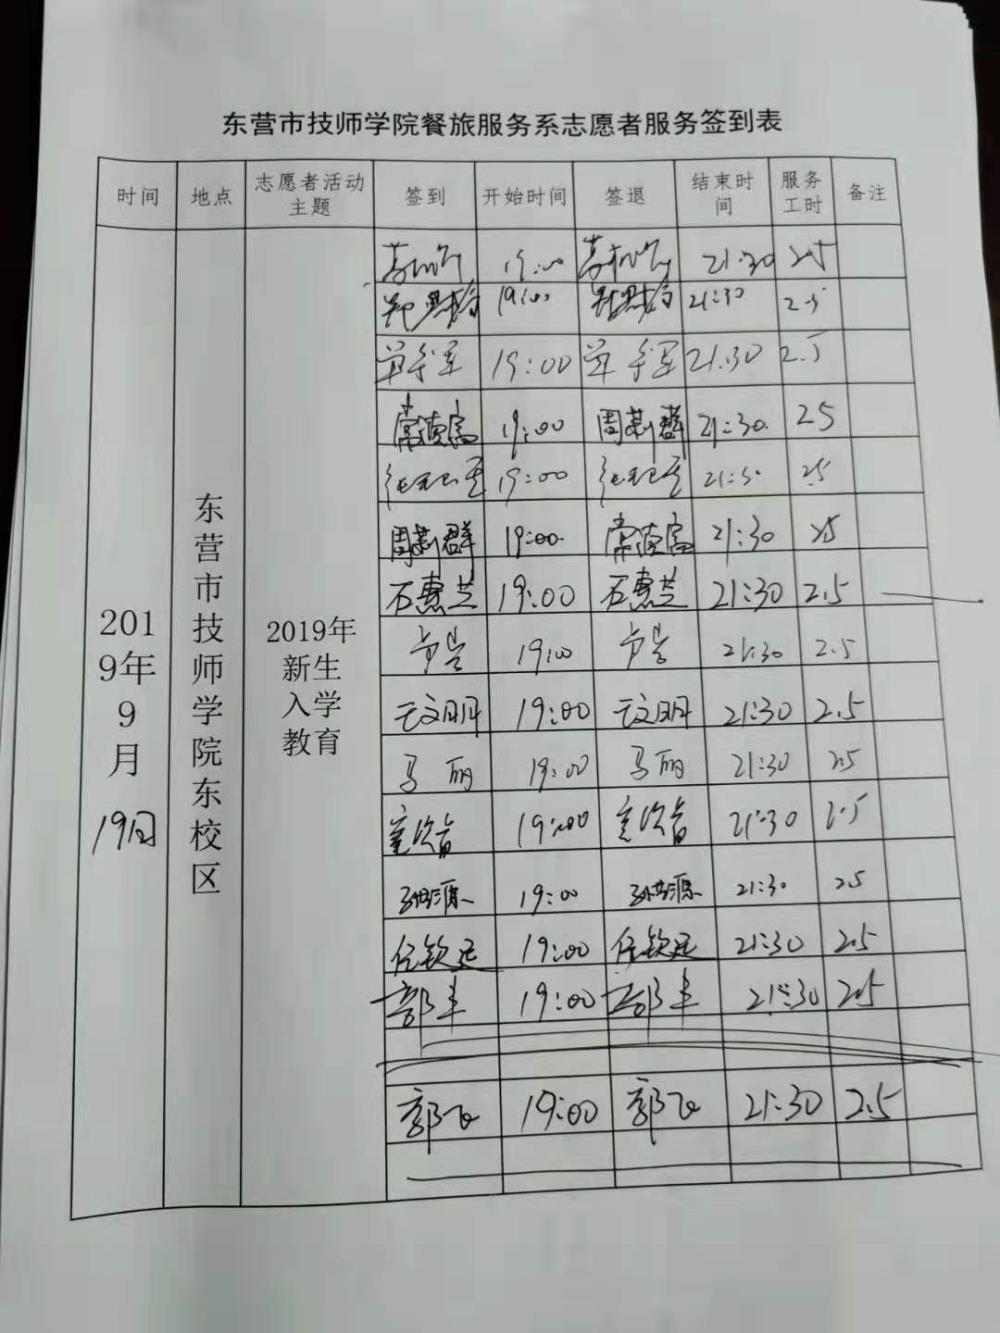 东营市技师学院餐旅服务系志愿者服务签到表
时间 地点 志愿者活动主题 签到 开始时间 签退 结束时间 服务工时 备注
2019年9月19日 东营市技师学院东校区 2019年新生入学教育
19:00 21:30 2.5
19:00 21:30 2.5
19:00 21:30 2.5
常德富 19:00 周莉群 21:30 2.5
19:00 21:30 2.5
周莉群 19:00 常德富 21:30 2.5
石惠芝 19:00 石惠芝 21:30 2.5
19:00 21:30 2.5
王文明 19:00 王文明 21:30 2.5
马丽 19:00 马丽 21:30 2.5
19:00 21:30 2.5
19:00 21:30 2.5
任钦廷 19:00 任钦廷 21:30 2.5
19:00 21:30 2.5
郭飞 19:00 郭飞 21:30 2.5